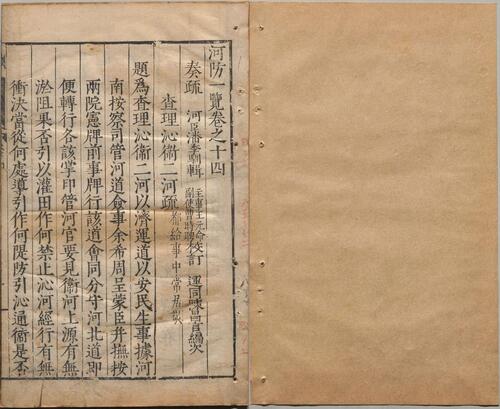 河防一覽卷之十四
奏疏 河臣潘季馴輯 主事王元命 副使曹時聘 校訂 運同 編次
查理沁衛二河疏 給事中常居敬
題為查理沁衛二河以濟運道以安民生事據河
南按察司管河道僉事余希周呈蒙臣并撫按
兩院憲牌前事牌行該道會同分守河北道即
便轉行各該掌印管河官要見衛河上源有無
淤阻果否引以灌田作何禁止沁河經行有無
衝決當從何處導引作何隄防引沁通衛是否